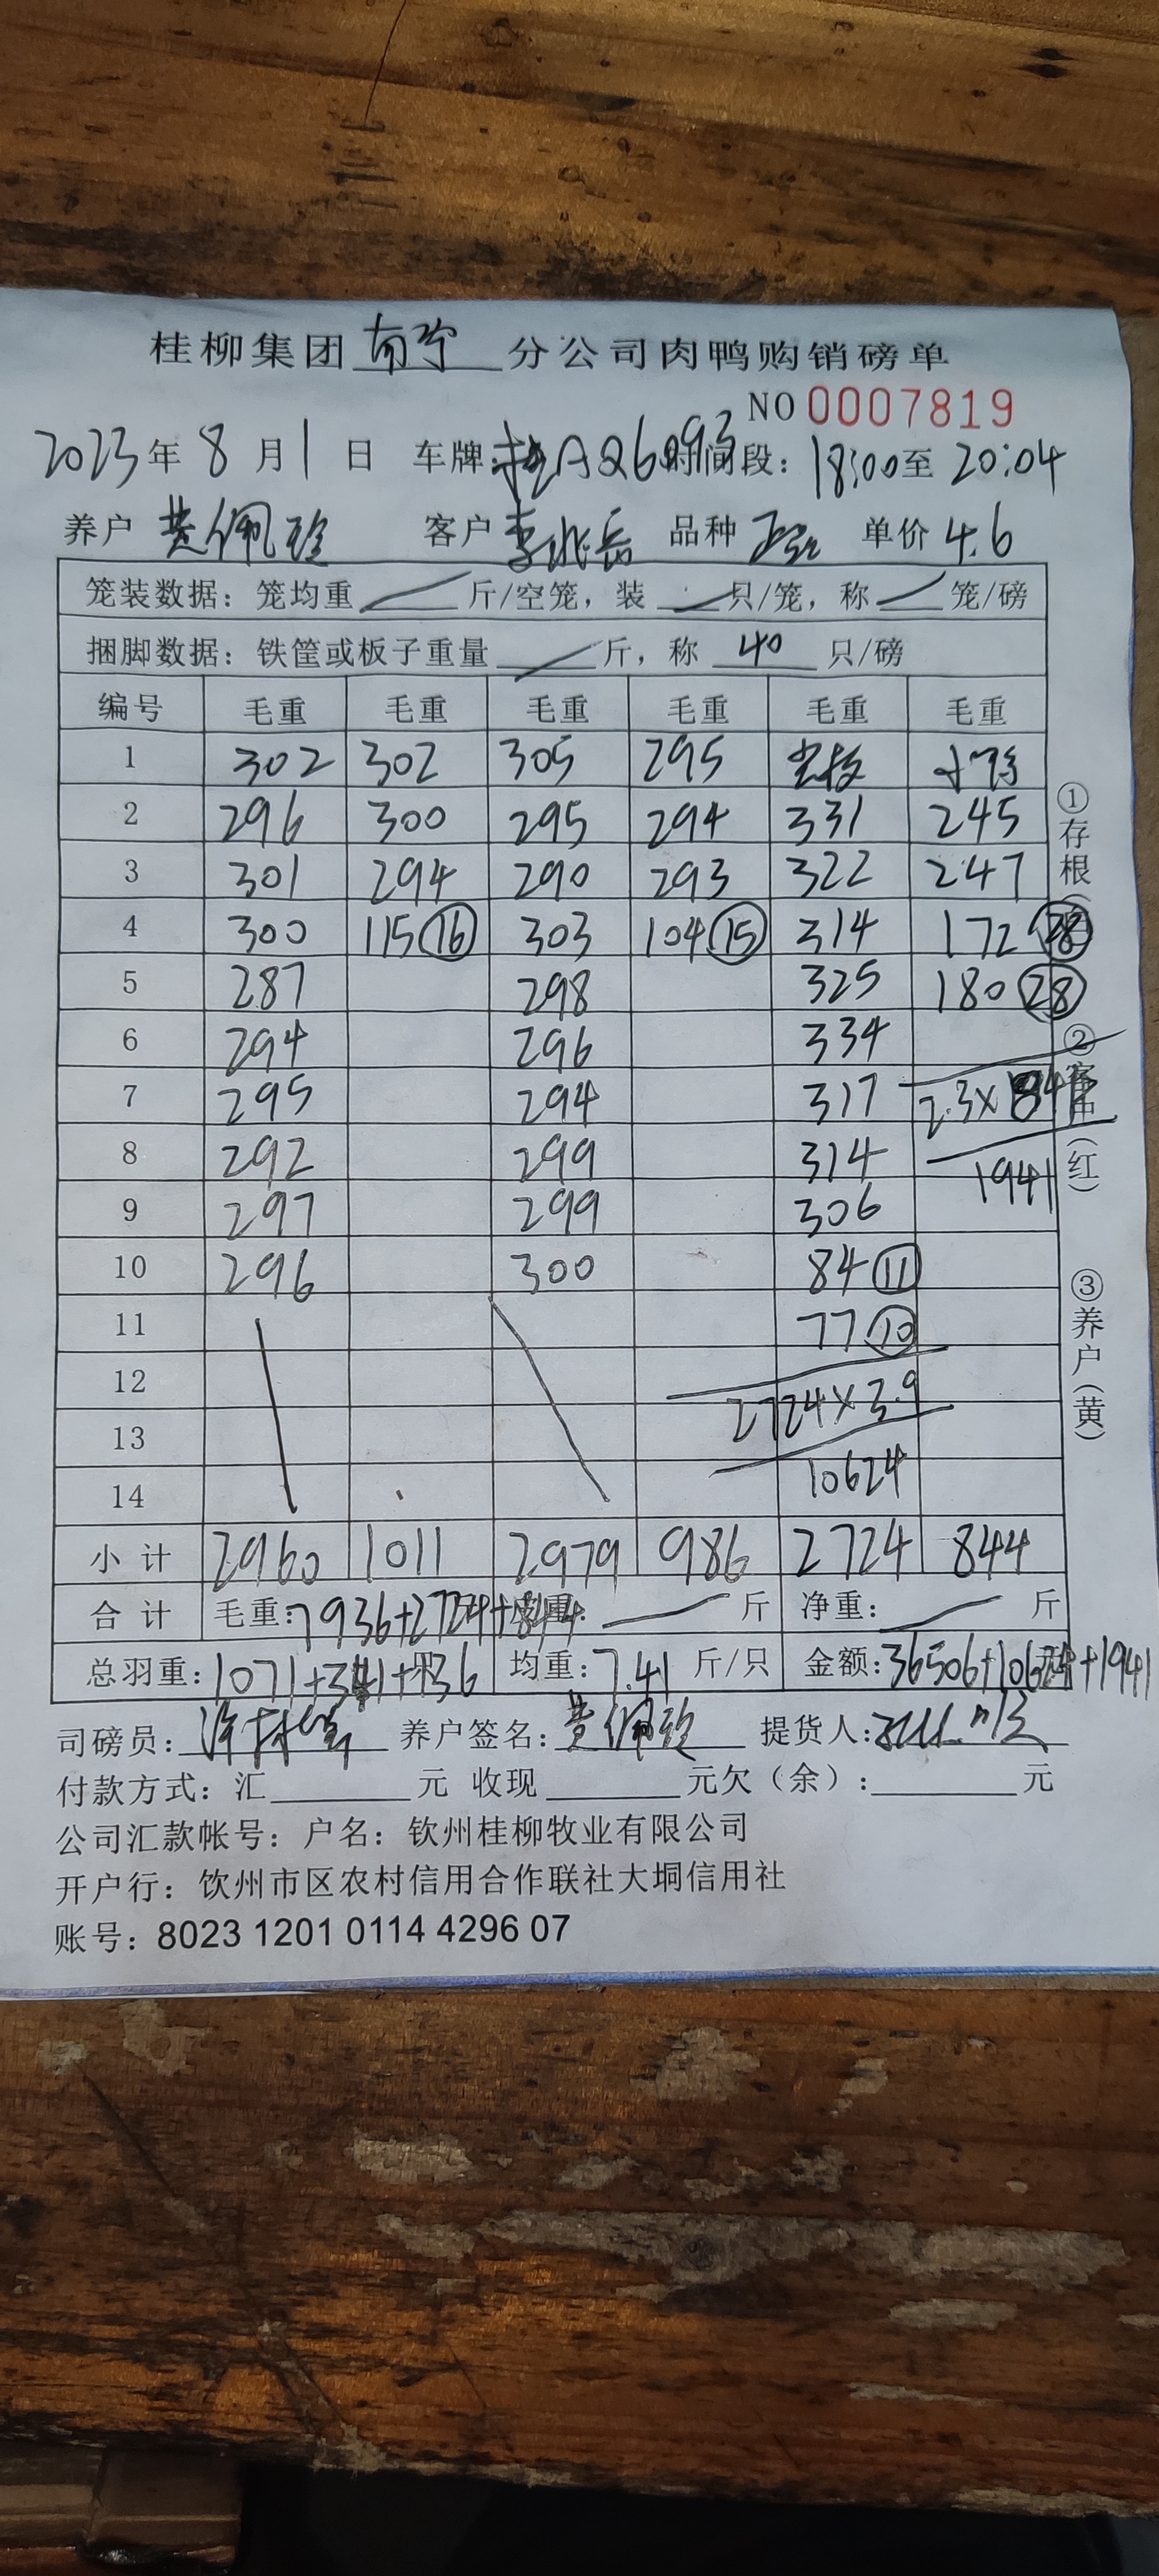 桂柳集团南宁分公司肉鸭购销磅单
NO 0007819
2023年8月1日 车牌桂AQ6093时间段：18:00至20:04
养户 黄佩玲 客户 李兆岳 品种 单价 4.6
笼装数据：笼均重 斤/空笼，装 只/笼，称 笼/磅
捆脚数据：铁筐或板子重量 斤，称 40 只/磅
编号 毛重 毛重 毛重 毛重 毛重 毛重
1 302 302 305 295
2 296 300 295 294 331 245
3 301 294 290 293 322 247
4 300 115⑯ 303 104⑮ 314 172
5 287 298 325 180㉘
6 294 296 334
7 295 294 317 2.3×844
8 292 299 314
1941
9 297 299 306
10 296 300 84⑪
11 77⑩
12
2724×3.9
13
14 10624
小计 2960 1011 2979 986 2724 844
合计 毛重：7936+2724+844 皮重： 斤 净重： 斤
总羽重：1071+341+136 均重：7.41 斤/只 金额：36506+10624+1941
司磅员： 养户签名：黄佩玲 提货人：
付款方式：汇 元 收现 元欠（余）： 元
公司汇款帐号：户名：钦州桂柳牧业有限公司
开户行：饮州市区农村信用合作联社大垌信用社
账号：8023 1201 0114 4296 07
①存根
②客户（红）
③养户（黄）